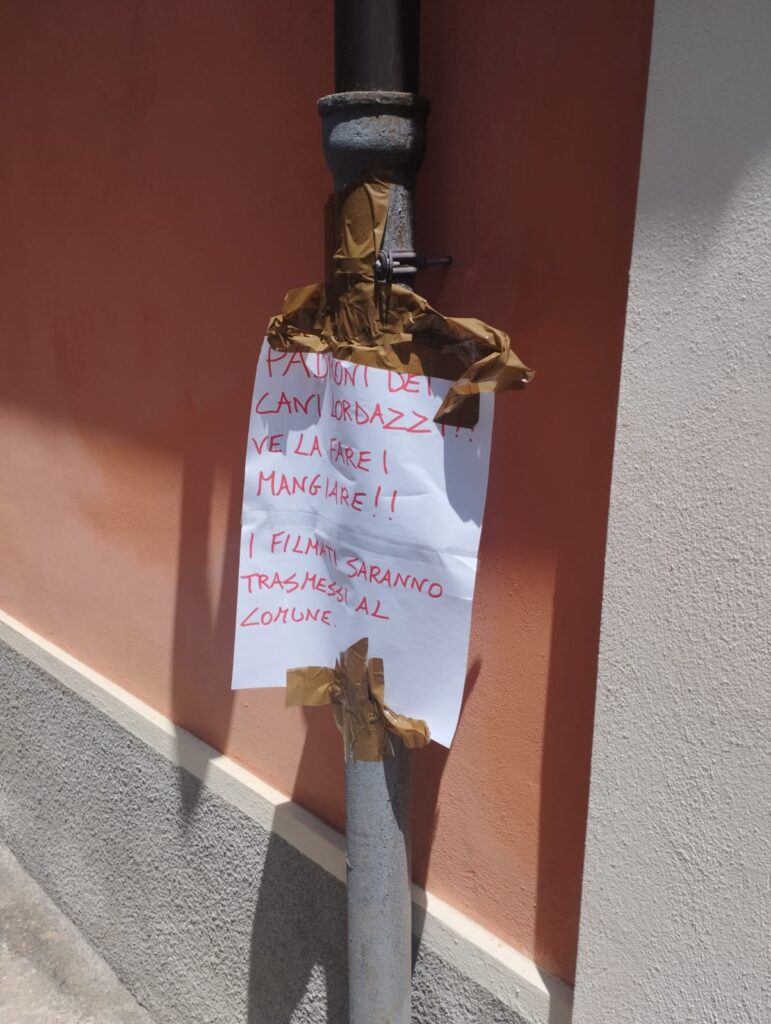 PADRONI DEI
CANI LORDAZZI!!
VE LA FARE I
MANGIARE!!
I FILMATI SARANNO
TRASMESSI AL
COMUNE.